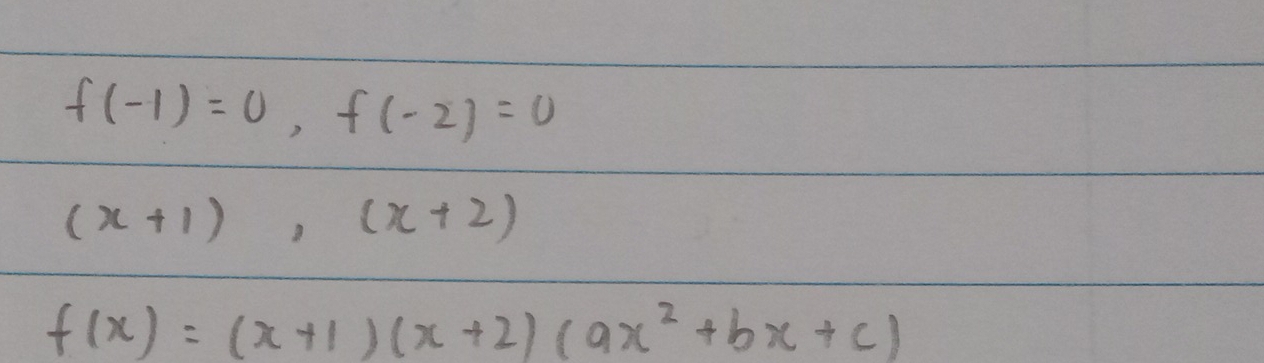 f(-1)=0, f(-2)=0
(x+1) , (x+2)
f(x) = (x+1)(x+2)(ax²+bx+c)